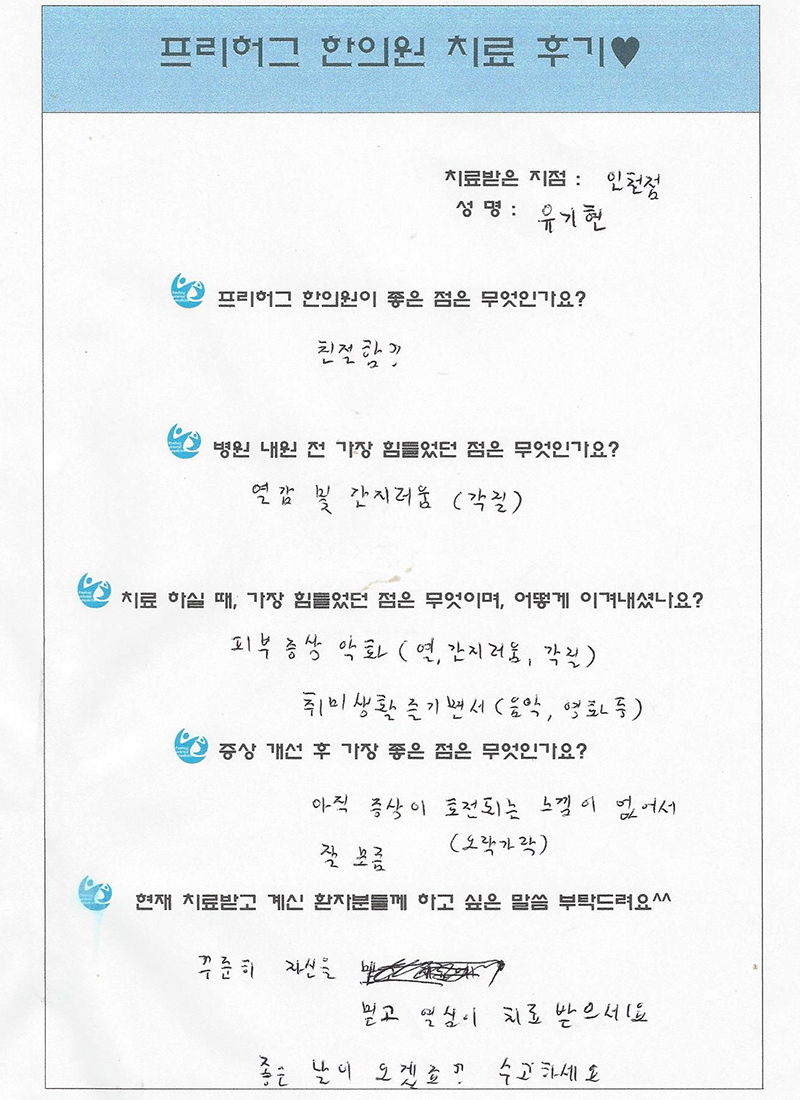 프리허그 한의원 치료 후기♥
치료받은 지점 : 인천점
성 명 : 유기현
프리허그 한의원이 좋은 점은 무엇인가요?
친절함?
병원 내원 전 가장 힘들었던 점은 무엇인가요?
열감 및 간지러움 (각질)
치료 하실 때, 가장 힘들었던 점은 무엇이며, 어떻게 이겨내셨나요?
피부 증상 악화 (열, 간지러움, 각질)
취미생활 즐기면서 (음악, 영화 등)
증상 개선 후 가장 좋은 점은 무엇인가요?
아직 증상이 호전되는 느낌이 없어서
잘 모름 (오락가락)
현재 치료받고 계신 환자분들께 하고 싶은 말씀 부탁드려요^^
꾸준히 자신을
믿고 열심히 치료 받으세요
좋은 날이 오겠죠? 수고하세요